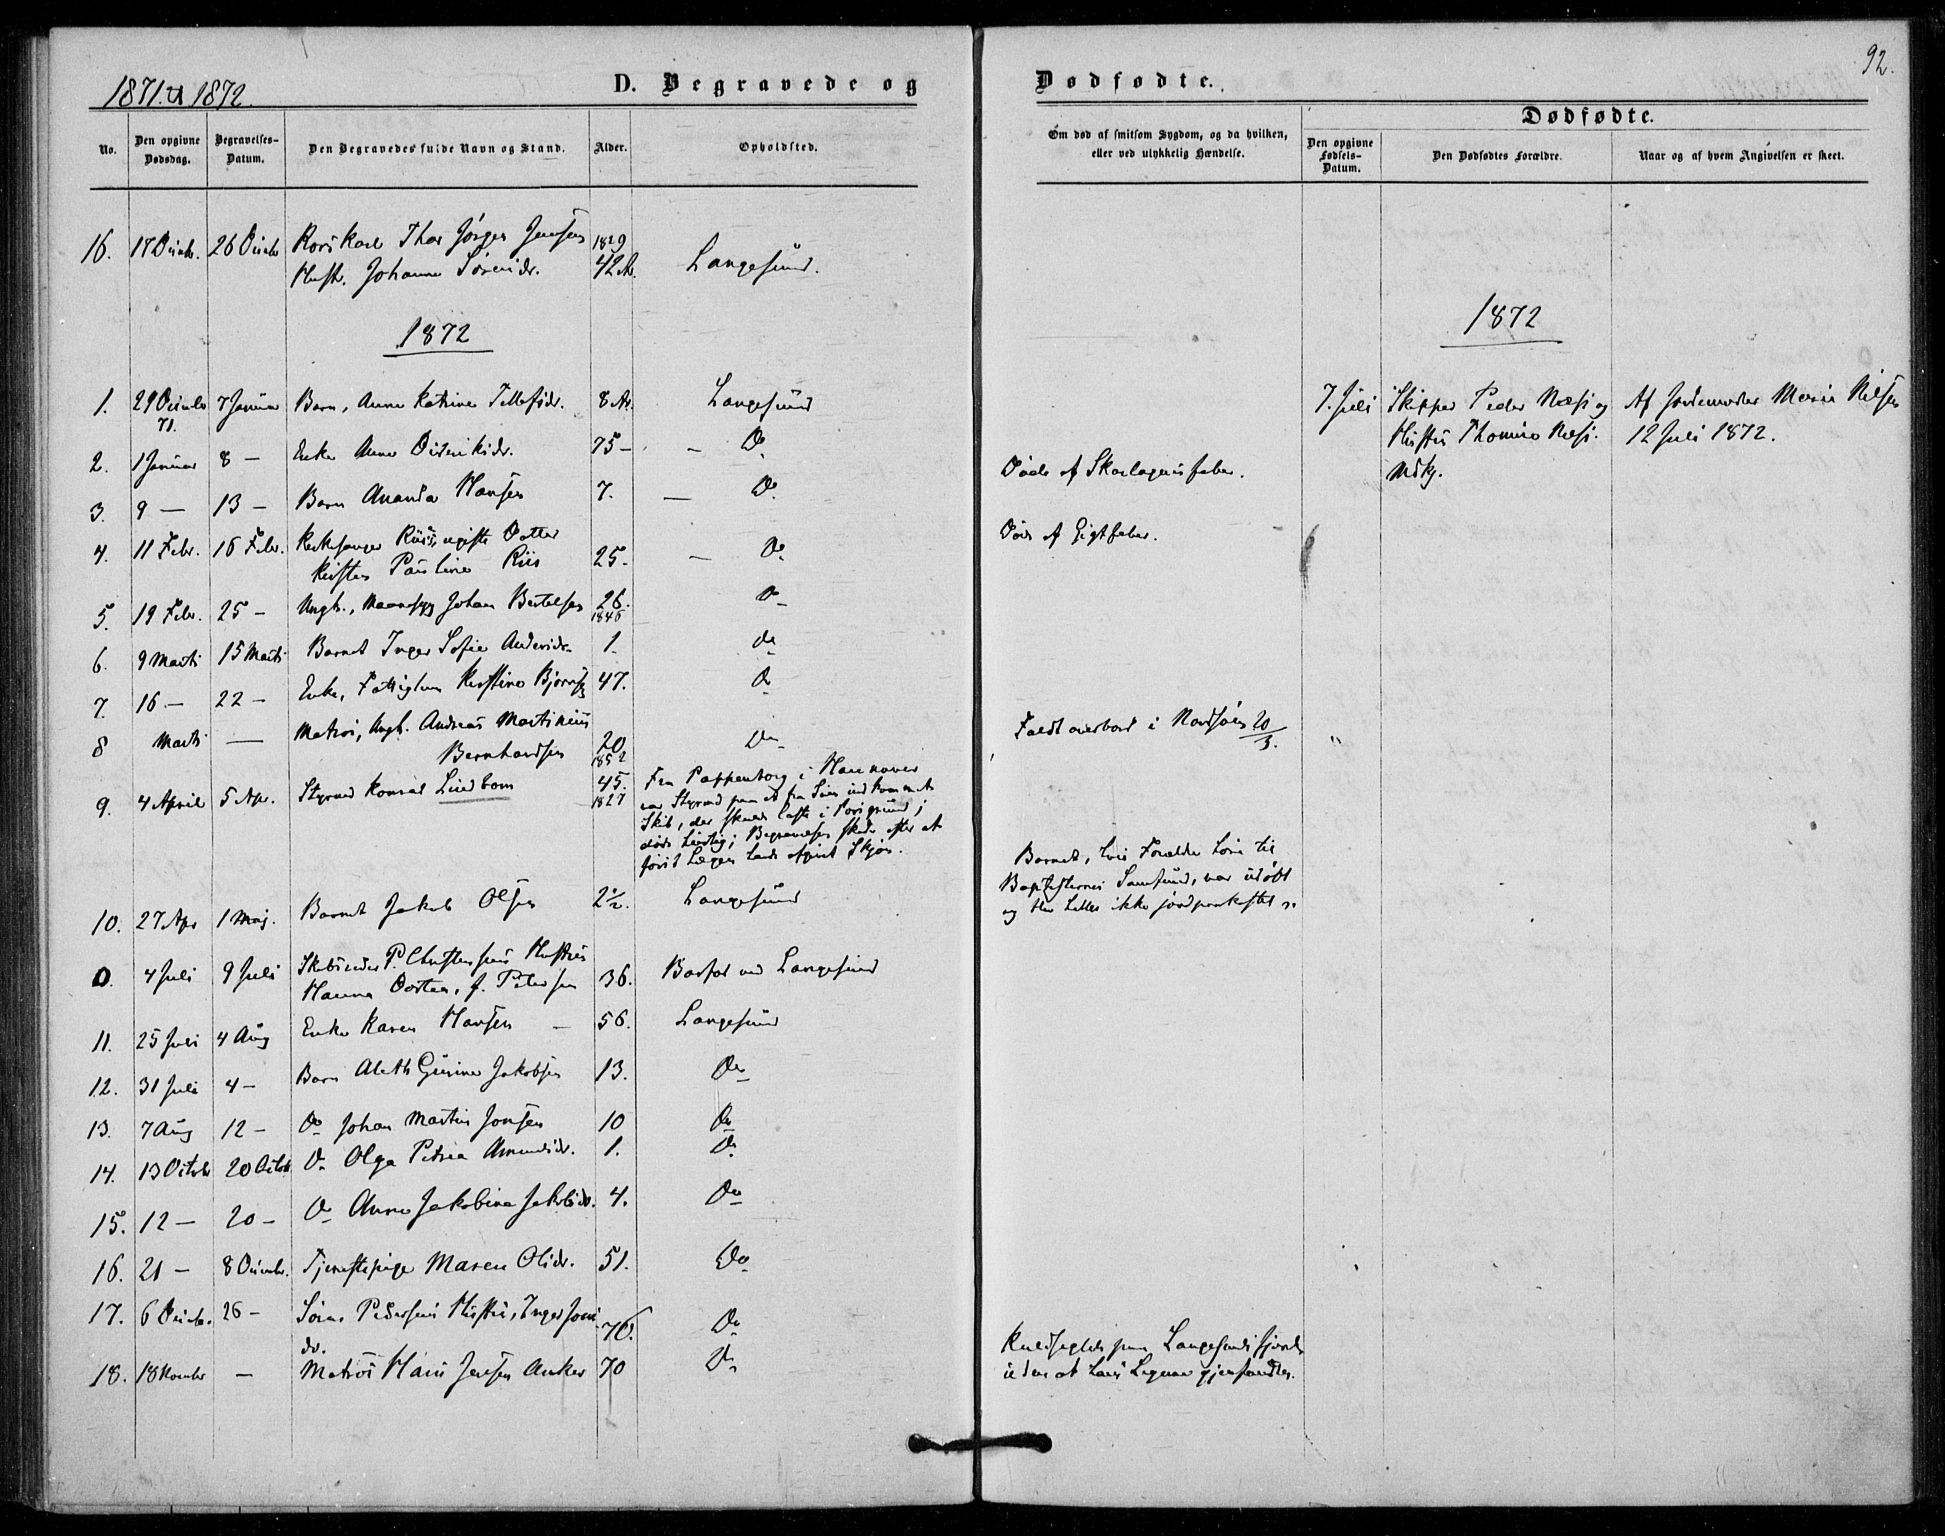 92.
1871 & 1872.
D. Begravede og
Dødfødte.
No.
Den opgivne Dødsdag.
Begravelses-Datum.
Den Begravedes fulde Navn og Stand.
Alder.
Opholdsted.
Om død af smitsom Sygdom, og da hvilken,
eller ved ulykkelig Hændelse.
Dødfødte.
Den opgivne Fødsels-Datum.
Den Dødfødtes Forældre.
Naar og af hvem Angivelsen er skeet.
16. 17 Decbr. 26 Decbr Thor Jørgen Jensen 1829
Hustr. Johanne Sørensdr. 42 Ar. Langesund.
1872
1872
1. 29 Decbr 71. 7 Januar Barn, Anne Katrine Tellefsdr. 8 Ar. Langesund
7. Juli Skipper Peder Næss og
Hustru Thomine Næss.
Mdkj.
Af Jordemoder Marie Nilsen
12 Juli 1872.
2. 1 Januar 8 — Enke Anne Didrikisdr. 75 — — Do
Døde af Skarlagensfeber.
3. 9 — 13 — Barn Ananda Hansen 7. — Do
4. 11 Febr. 16 Febr. Kirkesanger Riis's ugifte Datter
Kirsten Pauline Riis 25. — Do
Død af Gigtfeber.
5. 19 Febr. 25 — Ungk., Johan Bertelsen 26. 1846 Do
6. 9 Marts 15 Marts Barnet Inger Sofie Andersdr. 1. do
7. 16 — 22 — Enke, Fattiglem Kirstine Bjørns 47. Do
8 Marts — Matros, Ungk. Andreas Martinius
Bernhardsen 20 1852 Do
Faldt overbord i Nordsøen 20/3.
9. 4 April 5 Apr. Styrmd Konrad Lindbom 45. 1827
Fra Pappenborg i Hannover
var Styrmd paa et fra Søen indkommet
Skib, der skulde laste i Porsgrund;
døde Begravelsen skede efter at
først Lægen havde afgivet Skjøn.
10. 27 Apr 1 Maj. Barnet Jakob Olsen 2½. Langesund
Barnet, hvis Forældre høre til
Baptisternes Samfund, var udøbt
og blev heller ikke jordpaakastet.
0. 4 Juli 9 Juli P. Christensens Hustru
Hanna Dortea, f. Petersen 36. ved Langesund
11. 25 Juli 4 Aug Enke Karen Hansen — 56. Langesund
12. 31 Juli 4 — Barn Aleth Gurine Jakobsen 13. Do
13. 7 Aug 12 — Do Johan Martin Jonsen 10 Do
14. 13 Octobr 20 Octob Do Olga Petrea Amundsdr. 1. Do
15. 12 — 20 — Do Anne Jakobine Jakobsdr. 4. Do
16. 21 — 8 Decembr. Tjenestepige Maren Olsdr. 51. Do
17. 6 Decbr. 26 — Søren Pedersens Hustru, Inger Jons
dr. 76. Do
18. 18 Novmbr — Matros Hans Jensen Anker 70 Do
Kuldseglet paa Langesundsfjord
uden at hans Legeme gjenfandtes.